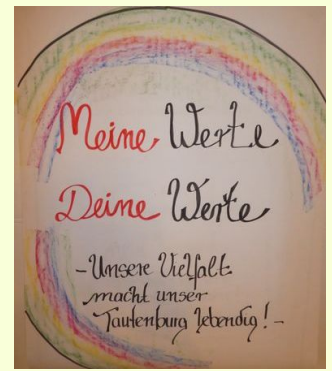 Meine Werte
Deine Werte
- Unsere Vielfalt
macht unser
Tautenburg lebendig! -